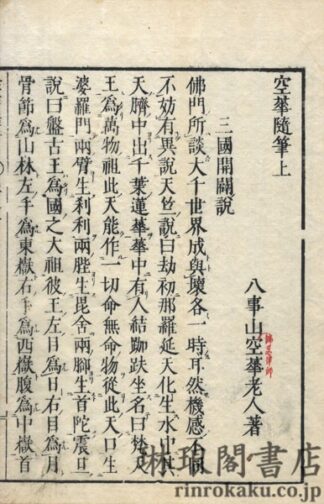 空華隨筆上
八事山空華老人著
諦忍律師
三國開闢說
佛門所談大千世界成與壞各一時耳然機感不同
不妨有異說天竺說曰劫初那羅延天化生水中其
天臍中出千葉蓮華華中有人結跏趺坐名曰梵天
王為萬物祖此天能作一切命無命物從此天口生
婆羅門兩臂生刹利兩䏶生毘舍兩脚生首陀震旦
說曰盤古王為國之大祖彼王左目為日右目為月
骨節為山林左手為東嶽右手為西嶽腹為中嶽首
琳琅閣書店
rinrokaku.co.jp